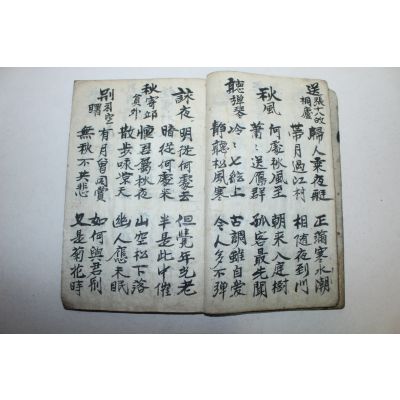 送張十八故桐廬
歸人乗夜艇 正落寒水潮
帶月過江村 相随夜到門
秋風
何處秋風至 朝來入庭樹
蕭〻送鴈群 孤客最先聞
聽弹琴
冷〻七絃上 古調雖自愛
靜聽松風寒 今人多不弹
詠夜
明從何處去 但覺年光老
暗從何處来 半是此中催
秋寄邱員外
懷君属秋夜 山空松下落
散步咏凉天 幽人應未眠
別 空曙
有月曾同賞 如何與君別
無秋不共悲 又是菊花時